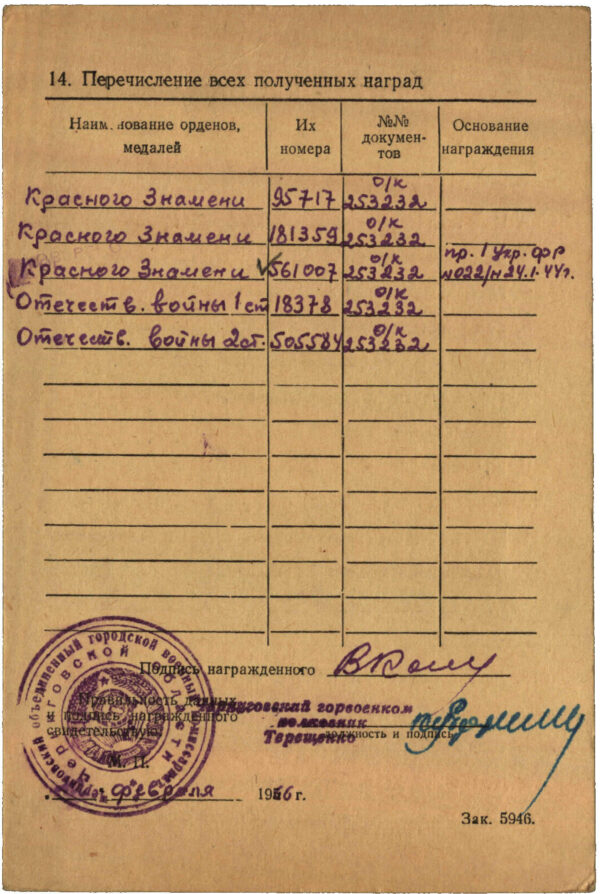 14. Перечисление всех полученных наград
Наименование орденов, медалей
Их номера
№№ документов
Основание награждения
Красного Знамени 95717 о/к 253232
Красного Знамени 181359 о/к 253232
Красного Знамени ✓ 561007 о/к 253232 пр. 1 Укр. фр №022/н 24.1.44г.
Отечеств. войны 1 ст 18378 о/к 253232
Отечеств. войны 2 ст. 505584 о/к 253232
Подпись награжденного
Правильность данных
и подпись награжденного
свидетельствую:
Черниговский горвоенком
полковник
Терещенко
должность и подпись
М. П.
февраля 1956 г.
Зак. 5946.